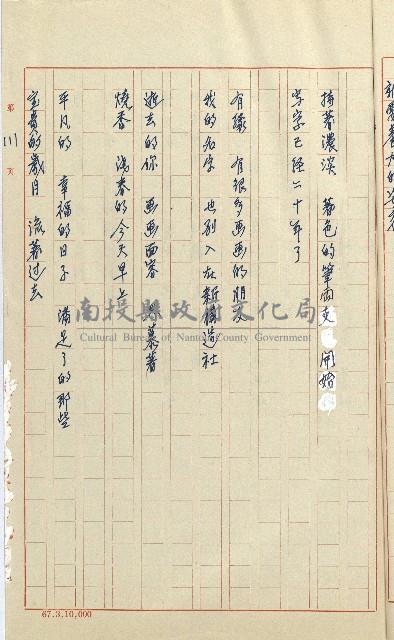 持著濃淡 著色的筆两支 開始
寫字已經二十年了
有緣 有很多画画的朋友
我的名字 也列入在新構造社
逝去的你 画画面容 慕著
燒香 溈春的今天早上
平凡的 幸福的日子 滿足了的那些
宝貴的歲月 流著过去
第 川 頁
南投縣政府文化局
Cultural Bureau of Nantou County Government
67.3.10,000